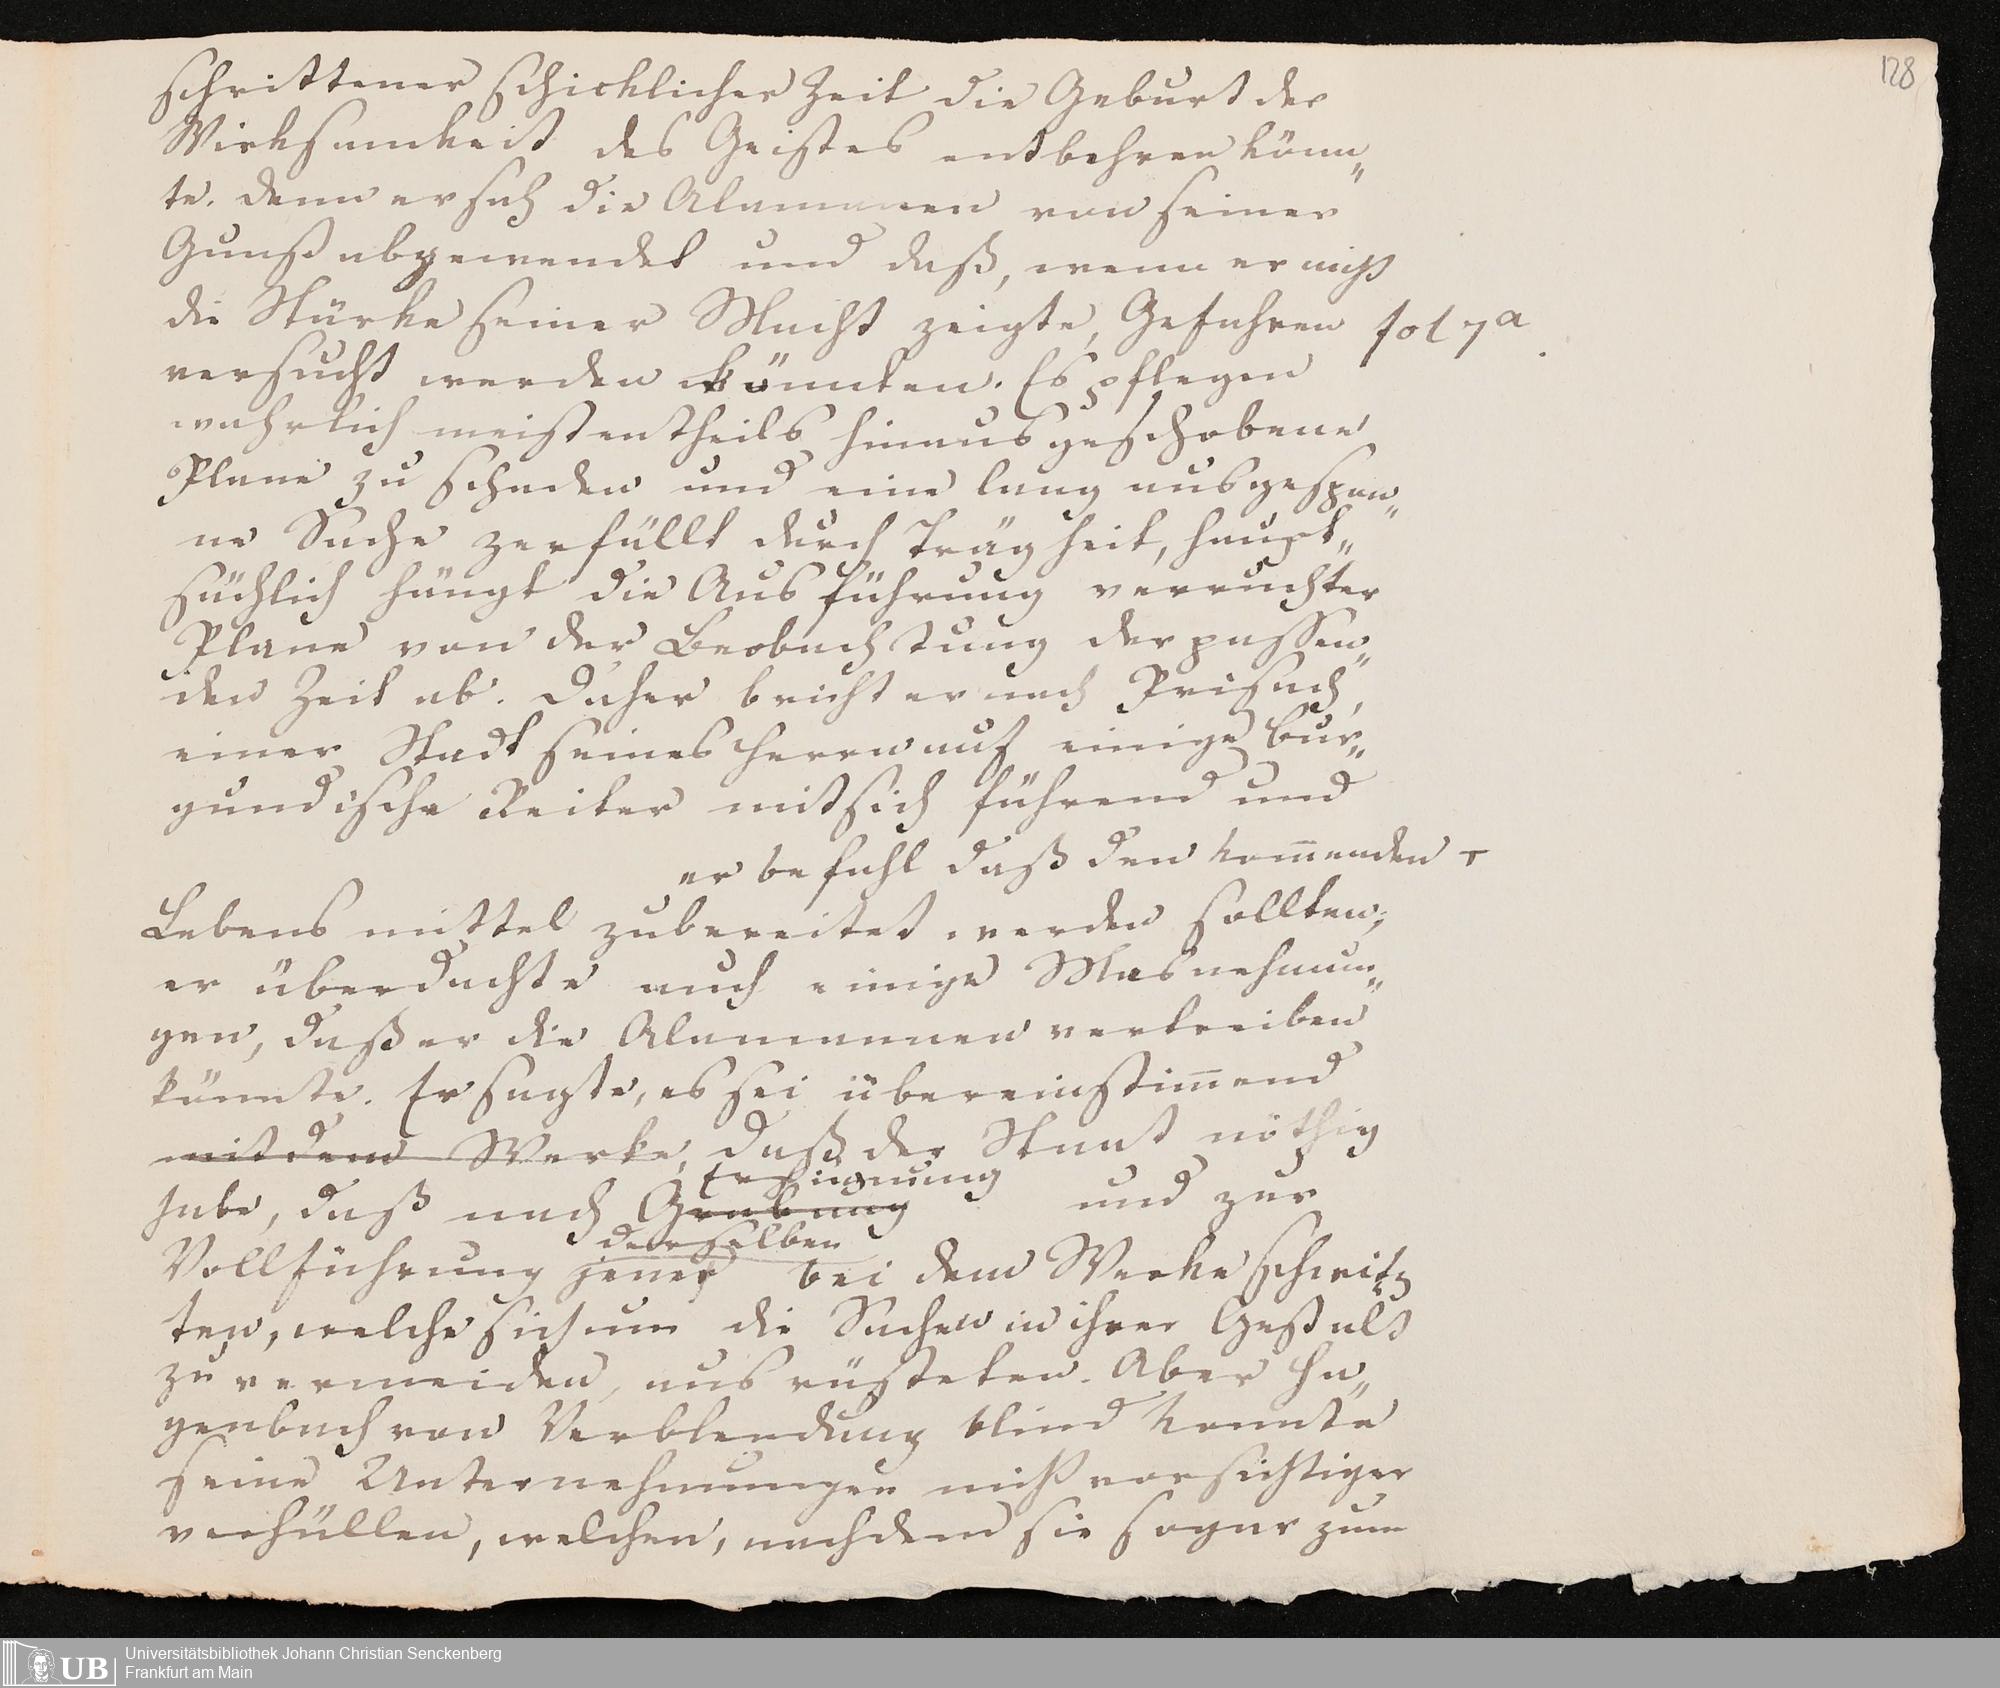 128
schrittener schicklicher Zeit die Geburt der
Wirksamkeit des Geistes entbehren könn„
te. denn er sah die Alamannen von seiner
Gunst abgewendet und daß, wenn er nicht
die Stärke seiner Macht zeigte, Gefahren fol 7a
versucht werden könnten. Es pflegen
wahrlich meistentheils hinausgeschobene
Plane zu schaden und eine lang ausgespon„
ne Sache zerfällt durch Trägheit, haupt„
sächlich hängt die Ausführung verruchter
Plane von der Beobachtung der passen„
den Zeit ab. Daher bricht er nach Prisach,
einer Stadt seines Herrn auf einige bur„
gundische Reiter mit sich führend und
er befahl daß den kom̅enden +
Lebensmittel zubereitet werden sollten;
er überdachte auch einige Masnehmun„
gen, daß er die Alamannen vertreiben
könnte. Er sagte, es sei übereinstim̅end
mit dem Werke, daß der Staat nöthig
habe, daß nach Grabung und zur
derselben
Vollführung jener bei dem Werke schrit„
ten, welche sich um die Sachen in ihrer Gestalt
zu vermeiden, ausrüsteten. Aber Ha„
genbach von Verblendung blind konnte
seine Unternehmungen nicht vorsichtiger
verhüllen, welchen, nachdem sie sogar zum
Universitätsbibliothek Johann Christian Senckenberg
Frankfurt am Main
UB